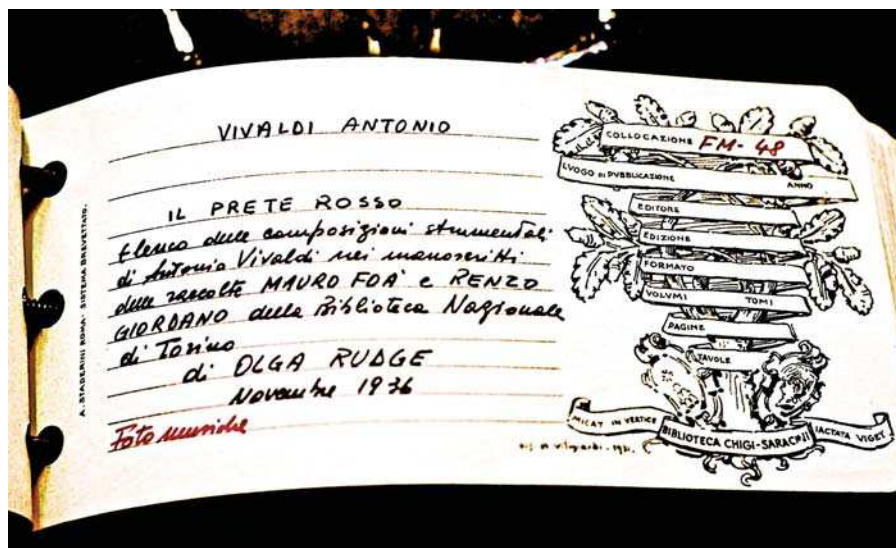 VIVALDI ANTONIO
IL PRETE ROSSO
Elenco delle composizioni strumentali
di Antonio Vivaldi nei manoscritti
delle raccolte MAURO FOA' e RENZO
GIORDANO della Biblioteca Nazionale
di Torino
di OLGA RUDGE
Novembre 1936
Foto musiche
A. STADERINI ROMA - SISTEMA BREVETTATO.
COLLOCAZIONE FM-48
LUOGO DI PUBBLICAZIONE ANNO
EDITORE
EDIZIONE
FORMATO
VOLVMI TOMI
PAGINE
TAVOLE
MICAT IN VERTICE
BIBLIOTECA CHIGI-SARACINI
IACTATA VIGET